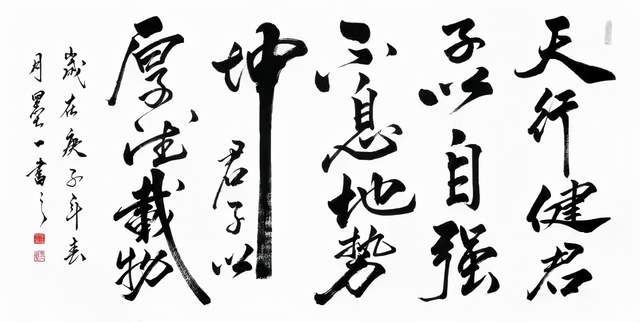 天行健君
子以自强
不息地势
坤君子以
厚德載物
歲在庚子年春
月墨一書之